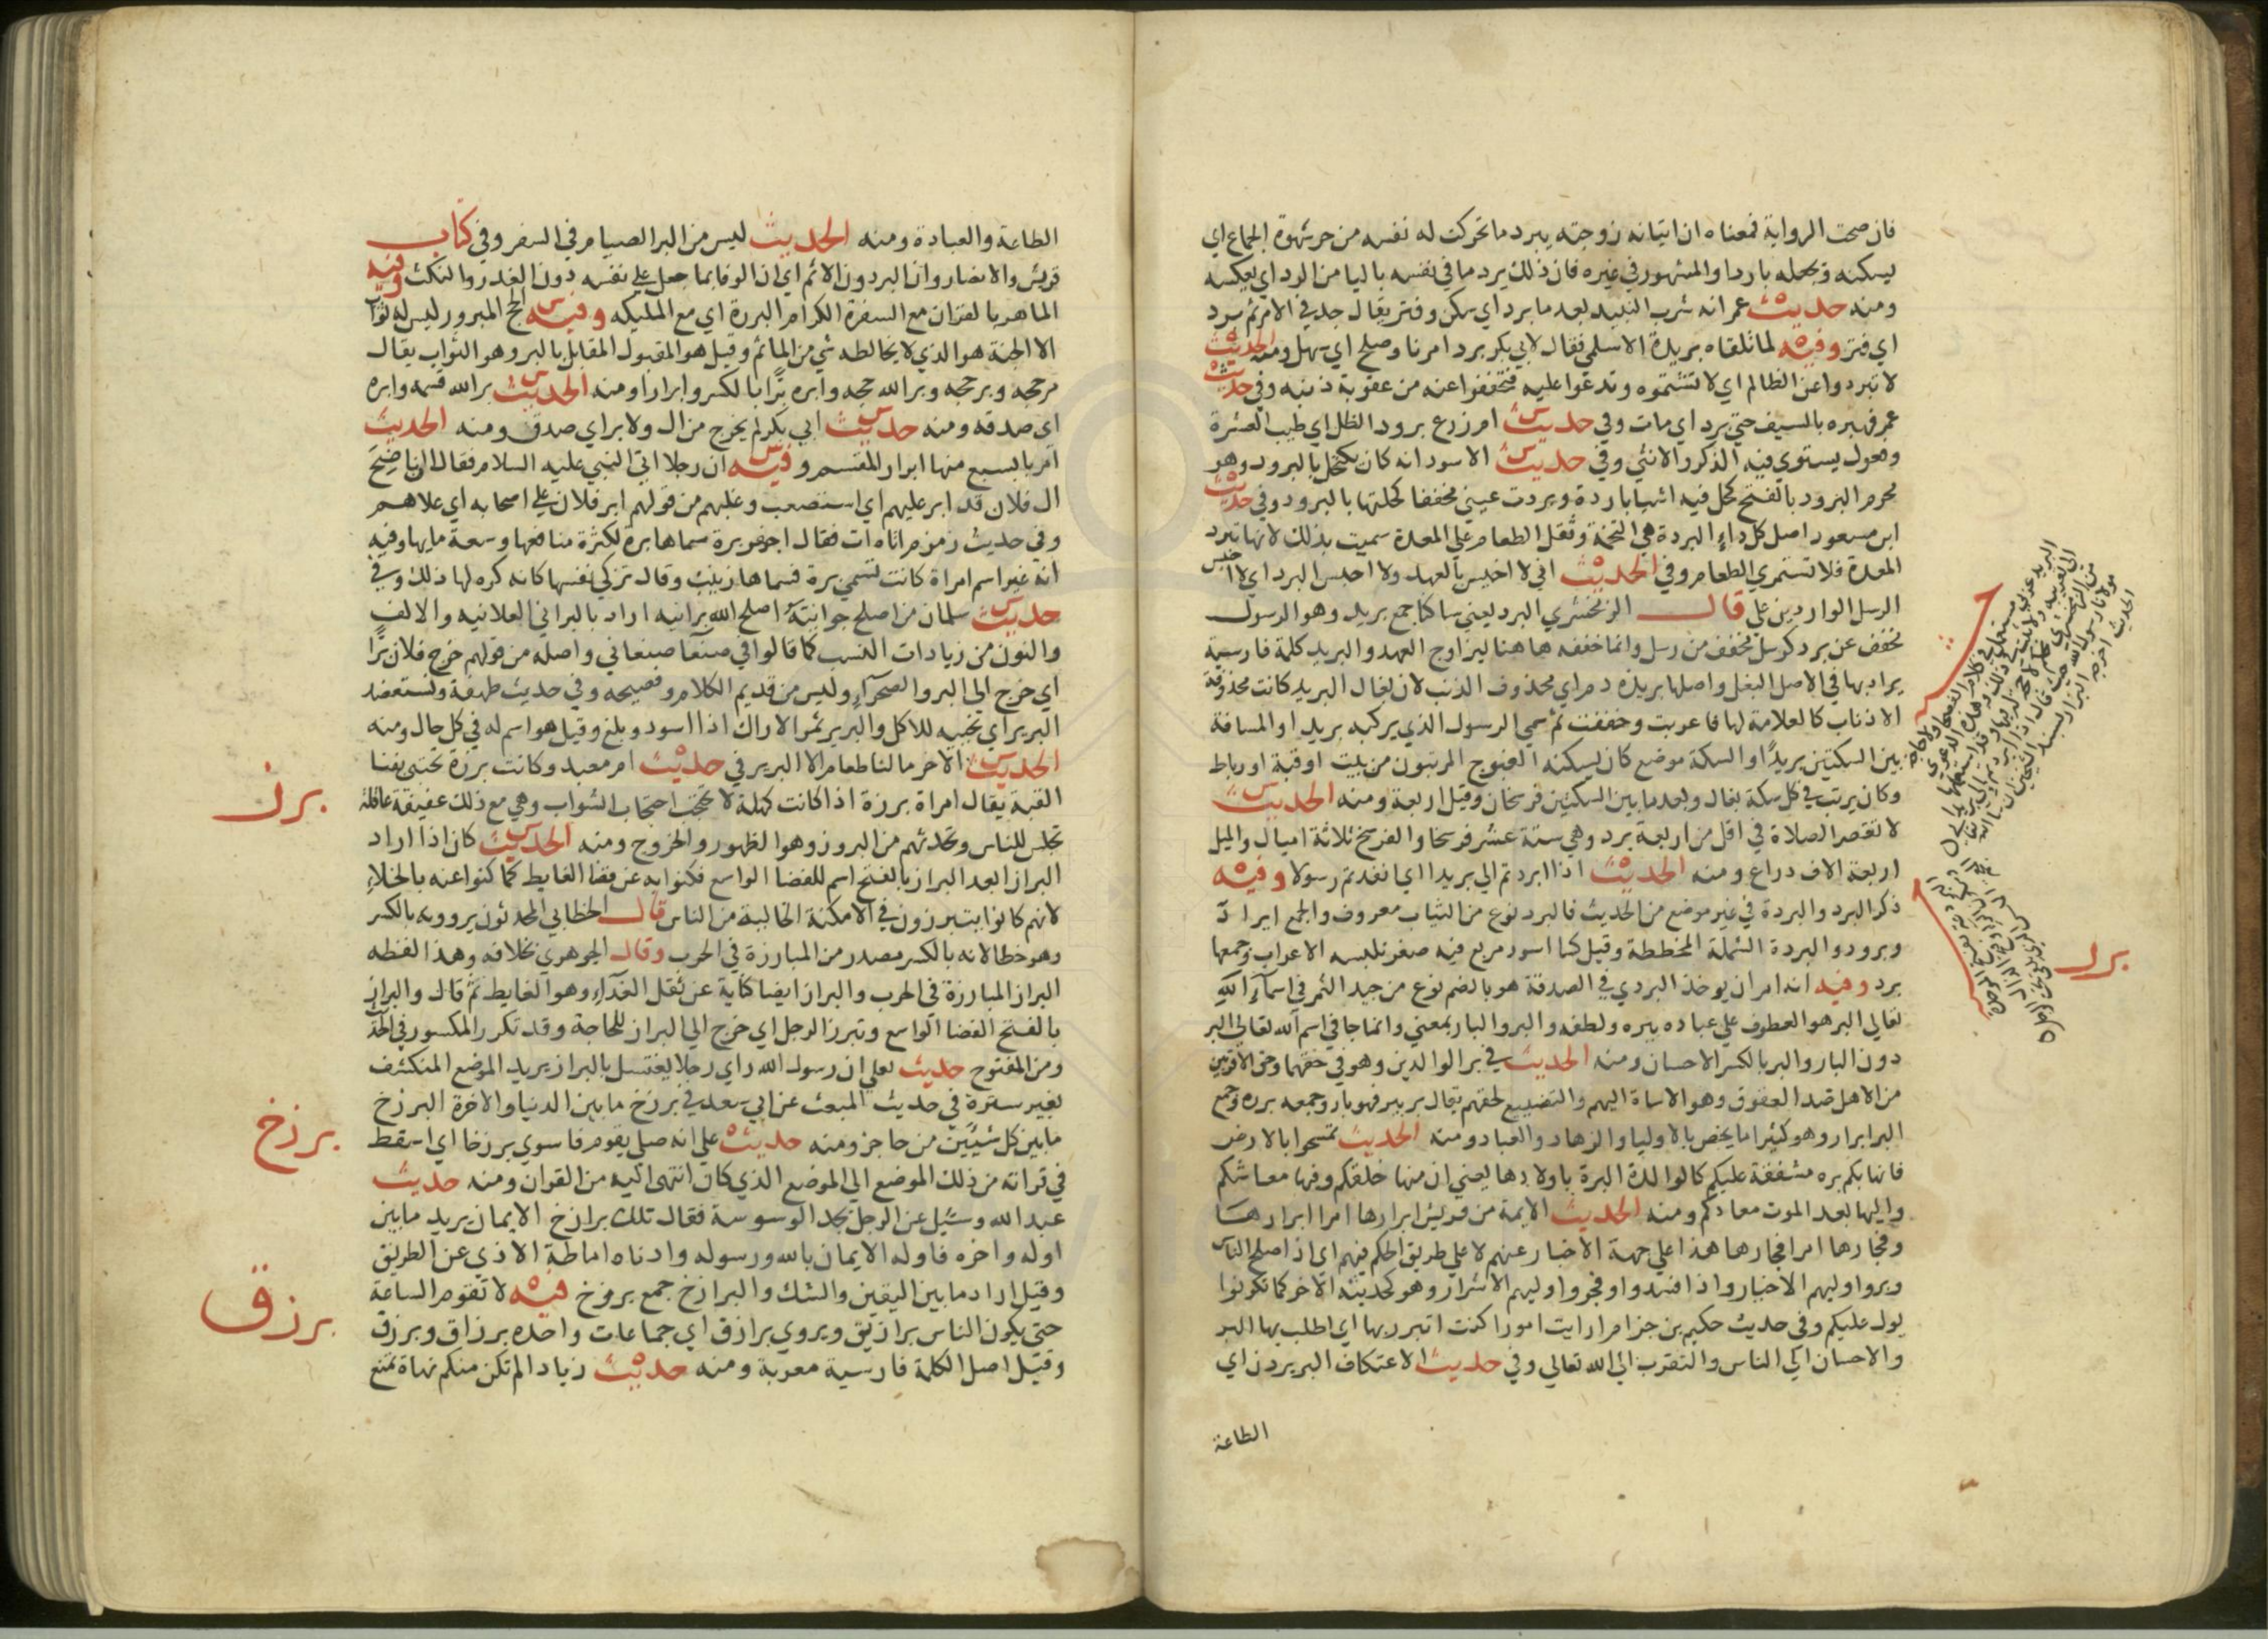 فان صحت الرواية فمعناه ان اتيانه زوجته يبرد ما تحركت له نفسه من حر شهوة الجماع اي
يسكنه ويجعله باردا والمشهور في غيره فان ذلك يرد ما في نفسه باليا من الرد اي يعكسه
ومنه حديث عمر انه شرب النبيذ بعد ما برد اي سكن وفتر يقال جد في الامر ثم برد
اي فتر وفيه لما تلقاه بريدة الاسلمي فقال لابي بكر برد امرنا وصلح اي سهل ومنه الحديث
لا تبردوا عن الظالم اي لا تشتموه وتدعوا عليه فتخففوا عنه من عقوبة ذنبه وفي حديث
عمر فهبره بالسيف حتي برد اي مات وفي حديث ام زرع برود الظل اي طيب العشرة
وفعول يستوي فيه الذكر والانثي وفي حديث الاسود انه كان يكتحل بالبرود وهو
محرم البرود بالفتح كحل فيه اشيا باردة وبردت عيني مخففا كحلتها بالبرود وفي حديث
ابن مسعود اصل كل داء البردة هي التخمة وثقل الطعام علي المعدة سميت بذلك لانها تبرد
المعدة فلا تستمري الطعام وفي الحديث اني لا اخيس بالعهد ولا احبس البرد اي لا احبس
الرسل الواردين علي قال الزمخشري البرد يعني ساكنا جمع بريد وهو الرسول
مخفف عن برد كرسل مخفف من رسل وانما خففه هاهنا ليزاوج العهد والبريد كلمة فارسية
يراد بها في الاصل البغل واصلها بريده دم اي محذوف الذنب لان بغال البريد كانت محذوفة
الاذناب كالعلامة لها فاعربت وخففت ثم سمي الرسول الذي يركبه بريدا والمسافة
بين السكتين بريدا والسكة موضع كان يسكنه الفيوج المرتبون من بيت او قبة او رباط
وكان يرتب في كل سكة بغال وبعد ما بين السكتين فرسخان وقيل اربعة ومنه الحديث
لا تقصر الصلاة في اقل من اربعة برد وهي ستة عشر فرسخا والفرسخ ثلاثة اميال والميل
اربعة الاف ذراع ومنه الحديث اذا ابردتم الي بريدا اي انفذتم رسولا وفيه
ذكر البرد والبردة في غير موضع من الحديث فالبرد نوع من الثياب معروف والجمع ابراد
وبرود والبردة الشملة المخططة وقيل كسا اسود مربع فيه صغر تلبسه الاعراب وجمعها
برد وفيه انه امر ان يوخذ البردي في الصدقة هو بالضم نوع من جيد الثمر في اسماء الله
تعالي البر هو العطوف علي عباده ببره ولطفه والبر والبار بمعني وانما جا في اسم الله تعالي البر
دون البار والبر بالكسر الاحسان ومنه الحديث في بر الوالدين وهو في حقهما وحق الاقربين
من الاهل ضد العقوق وهو الاساة اليهم والتضييع لحقهم يقال بر يبر فهو بار وجمعه بررة وجمع
البر ابرار وهو كثيرا ما يخص بالاوليا والزهاد والعباد ومنه الحديث تمسحوا بالارض
فانها بكم بره مشفقة عليكم كالوالدة البرة باولادها يعني ان منها خلقكم وفيها معاشكم
واليها بعد الموت معادكم ومنه الحديث الايمة من قريش ابرارها امرا ابرارها
وفجارها امرا فجارها هذا علي جهة الاخبار عنهم لا علي طريق الحكم فيهم اي اذا صلح الناس
وبروا وليهم الاخيار واذا فسدوا وفجروا وليهم الاشرار وهو كحديثه الاخر كما تكونوا
يول عليكم وفي حديث حكيم بن حزام ارايت امورا كنت اتبرر بها اي اطلب بها البر
والاحسان الي الناس والتقرب الي الله تعالي وفي حديث الاعتكاف البر يردن اي
الطاعة
برر
الطاعة والعبادة ومنه الحديث ليس من البر الصيام في السفر وفي كتاب
قريش والانصار وان البر دون الاثم اي ان الوفا بما جعل علي نفسه دون الغدر والنكث وفيه
الماهر بالقران مع السفرة الكرام البررة اي مع المليكه وفيه الحج المبرور ليس له ثواب
الا الجنة هو الذي لا يخالطه شي من الماثم وقيل هو المقبول المقابل بالبر وهو الثواب يقال
بر حجه وبر حجه وبر الله حجه وابره برا بالكسر وابرارا ومنه الحديث بر الله قسمه وابره
اي صدقه ومنه حديث ابي بكر لم يخرج من ال ولا بر اي صدق ومنه الحديث
امر بالسبع منها ابرار المقسم وفيه ان رجلا اتي النبي عليه السلام فقال ان ناضح
ال فلان قد ابر عليهم اي استصعب وغلبهم من قولهم ابر فلان علي اصحابه اي علاهم
وفي حديث زمزم اتاه ات فقال احفر برة سماها برة لكثرة منافعها وسعة مايها وفيه
انه غير اسم امراة كانت تسمي برة فسماها زينب وقال تزكي نفسها كانه كره لها ذلك وفي
حديث سلمان من اصلح جوانيته اصلح الله برانيه اراد بالبراني العلانيه والالف
والنون من زيادات النسب كما قالوا في صنعا صنعاني واصله من قولهم خرج فلان برا
اي خرج الي البر والصحراء وليس من قديم الكلام وفصيحه وفي حديث طهفة ونستعضد
البرير اي نجنيه للاكل والبرير ثمر الاراك اذا اسود وبلغ وقيل هو اسم له في كل حال ومنه
الحديث الاخر ما لنا طعام الا البرير في حديث ام معبد وكانت برزة تحتبي بفنا
القبة يقال امراة برزة اذا كانت كهلة لا تحتجب احتجاب الشواب وهي مع ذلك عفيفة عاقلة
تجلس للناس وتحدثهم من البروز وهو الظهور والخروج ومنه الحديث كان اذا اراد
البراز ابعد البراز بالفتح اسم للفضا الواسع فكنوا به عن قضا الغايط كما كنوا عنه بالخلاء
لانهم كانوا يتبرزون في الامكنة الخالية من الناس قال الخطابي المحدثون يروونه بالكسر
وهو خطا لانه بالكسر مصدر من المبارزة في الحرب وقال الجوهري بخلافه وهذا لفظه
البراز المبارزة في الحرب والبراز ايضا كناية عن ثقل الغذاء وهو الغايط ثم قال والبراز
بالفتح الفضا الواسع وتبرز الرجل اي خرج الي البراز للحاجة وقد تكرر المكسور في الحديث
ومن المفتوح حديث يعلي ان رسول الله راي رجلا يغتسل بالبراز يريد الموضع المنكشف
بغير سترة في حديث المبعث عن ابي سعد في برزخ ما بين الدنيا والاخرة البرزخ
ما بين كل شيئين من حاجز ومنه حديث علي انه صلي بقوم فاسوي برزخا اي اسقط
في قراته من ذلك الموضع الي الموضع الذي كان انتهي اليه من القران ومنه حديث
عبد الله وسئيل عن الرجل يجد الوسوسة فقال تلك برازخ الايمان يريد ما بين
اوله واخره فاوله الايمان بالله ورسوله وادناه اماطة الاذي عن الطريق
وقيل اراد ما بين اليقين والشك والبرازخ جمع برزخ فيه لا تقوم الساعة
حتي يكون الناس برازيق ويروي برازق اي جماعات واحده برزاق وبرزق
وقيل اصل الكلمة فارسية معربة ومنه حديث زياد الم تكن منكم نهاة تمنع
برز
برزخ
برزق